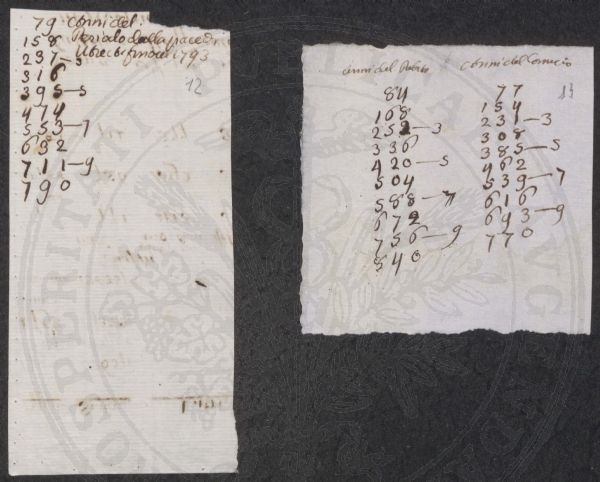 79 Conni del
158 Periodo dalla pace di
237—3 Utrecht fino al 1793
316
12
395—5
474
553—7
632
711—9
790
Conni del Conni del Comercio
14
84 77
168 154
252—3 231—3
336 308
420—5 385—5
504 462
588—7 539—7
672 616
756—9 693—9
840 770